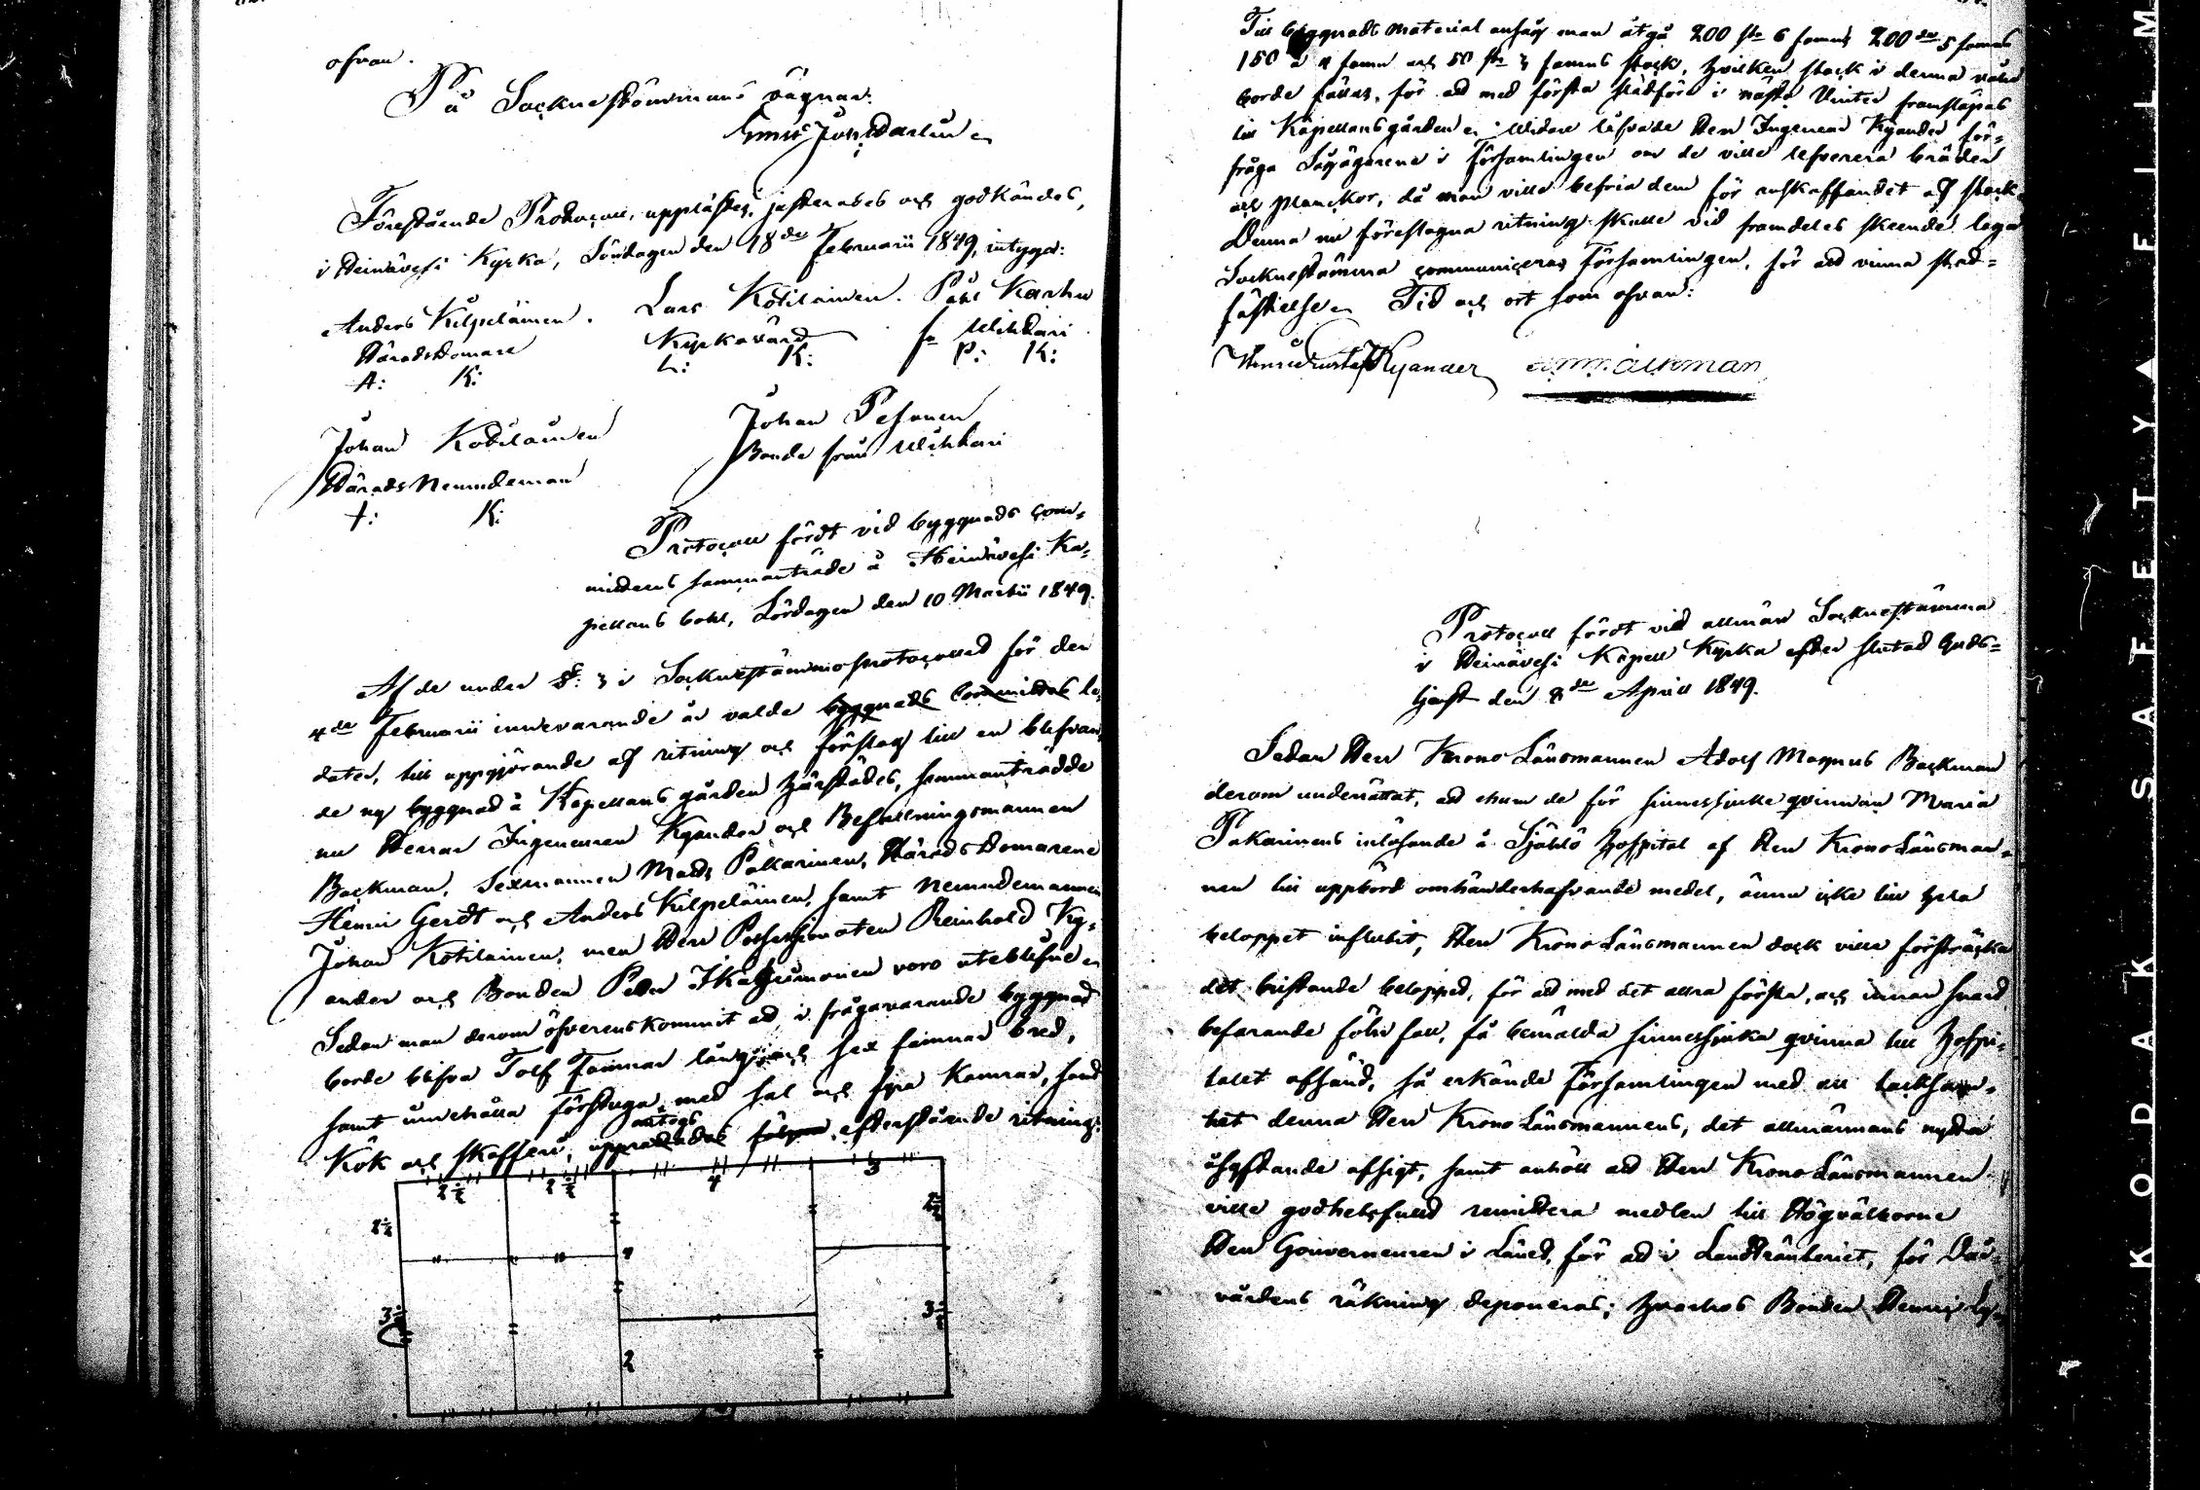 ofvan.
På Sockneståmmans vägnar:
Förestående Protocoll, upplästes, justerades och godkändes,
i Heinävesi Kyrka, Söndagen den 18de Februarii 1849, intyga:
Anders Kilpeläinen. Lars Kotilainen. Påhl Karhu
HäradsDomare Kyrkovärd fr Wihtari
A: K: L: K: P: K:
Johan Kotilainen Johan Pesonen
HäradsNemndeman Bonde från Wihtari
J: K:
Protocoll fördt vid byggnads com-
mitteens sammanträde å Heinävesi Ka-
pellans bohl, Lördagen den 10 Martii 1849.
Af de under §: 3 i Sockneståmmoprotocollet för den
4de Februarii innevarande år valde byggnads Committee le-
dater, till uppgjörande af ritning och förslag till en blifvan-
de ny byggnad å Kapellans gården härstädes, sammanträdde
nu Herrar Ingenieuren Kyander och Befallningsmannen
Backman, Sexmannen Mats Pakarinen, HäradsDomarene
Henric Gerdt och Anders Kilpeläinen, samt Nemndemannen
Johan Kotilainen, men Herr Possessionaten Reinhold Ky-
ander och Bonden Petter Ikäheimonen voro uteblifne.
Sedan man derom öfverenskommit att i frågavarande byggnad
borde blifva Tolf Famnar lång och sex famnar bred,
samt innehålla förstuga med sal och fyra Kamrar, samt
antogs
Kök och skafferi, upprättades följan efterstående ritning:
2½ 2½ 4 3
2½ 2½
4
3½ 3½
2
Till byggnads material ansåg man åtgå 200 st. 6 famns 200 de 5 famns
150 à 4 famn och 50 st. 3 famns stock, hvilken stock i denna våhr
borde fällas, för att med första slädföre i nästa Vinter framsläpas
till Kapellansgården. Widare lofvade Herr Ingenieur Kyander för-
fråga Sågägarene i församlingen om de ville lefverera bräder
och planckor, då man ville befria dem för anskaffandet af stock.
Denna nu föreslagna ritning skulle vid framdeles skeende laga
Socknestämma communiceras Församlingen, för att vinna stad-
fästelse. Tid och ort som ofvan:
Henric Gustaf Kyander A. M. Backman
Protocoll fördt vid allmän Socknestämma
i Heinävesi Kapell Kyrka efter slutad Guds-
tjenst den 8de April 1849.
Sedan Herr KronoLänsmannen Adolf Magnus Backman
derom underrättat, att ehuru de för sinnessjuke qvinnan Maria
Pakarinens inlösande å Själö Hospital af Herr KronoLänsman-
nen till uppbörd omhänderhafvande medel, ännu icke till hela
beloppet influtit, Herr KronoLänsmannen dock ville försträcka
det bristande beloppet, för att med det allra första, och innan snart
befarande före fall, få bemälda sinnessjuka qvinna till Hospi-
talet afsänd, så erkände Församlingen med all tacksam-
het denna Herr KronoLänsmannens, det allmännas nytta
åsyftande afsigt, samt anhöll att Herr KronoLänsmannen
ville godhetsfullt remittera medlen till Högvälborne
Herr Gouverneuren i Länet, för att i Landtränteriet, för Dår-
vårdens räkning deponeras; hvarhos Bonden Henric
KODAK SAFETY FILM